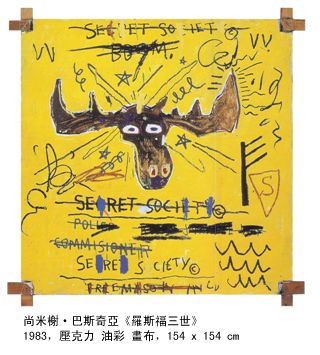 SECRET SOCIETY
BOOM.
S
SECRET SOCIETY©
POLI
COMMISIONER
SECRET SCIETY©
FREEMASON
尚米榭·巴斯奇亞《羅斯福三世》
1983, 壓克力 油彩 畫布, 154 x 154 cm